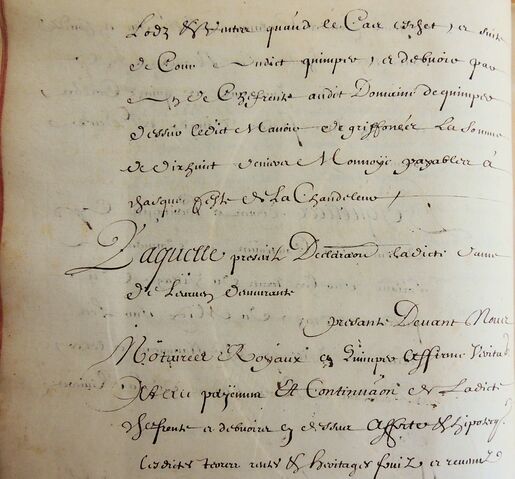 Lodz & Ventes quand le Cas eschet, et suite
de Cour audict quimper, et debvoir par
de Cheffrente audit Domaine de quimper
dessur ledict Manoir de griffonéz La Somme
de dixhuict deniers Monnoye payables à
chasque feste de La Chandeleur
Laquelle presant Declaraon ladicte dame
de demurante
presante Devant Nous
Nottaires Royaux à Quimper affirme veritab
payemant Et Continuaon de Ladicte
cheffrente et debvoirs cy dessur affecte & hipoteq
lesdictes terres rentes & heritages